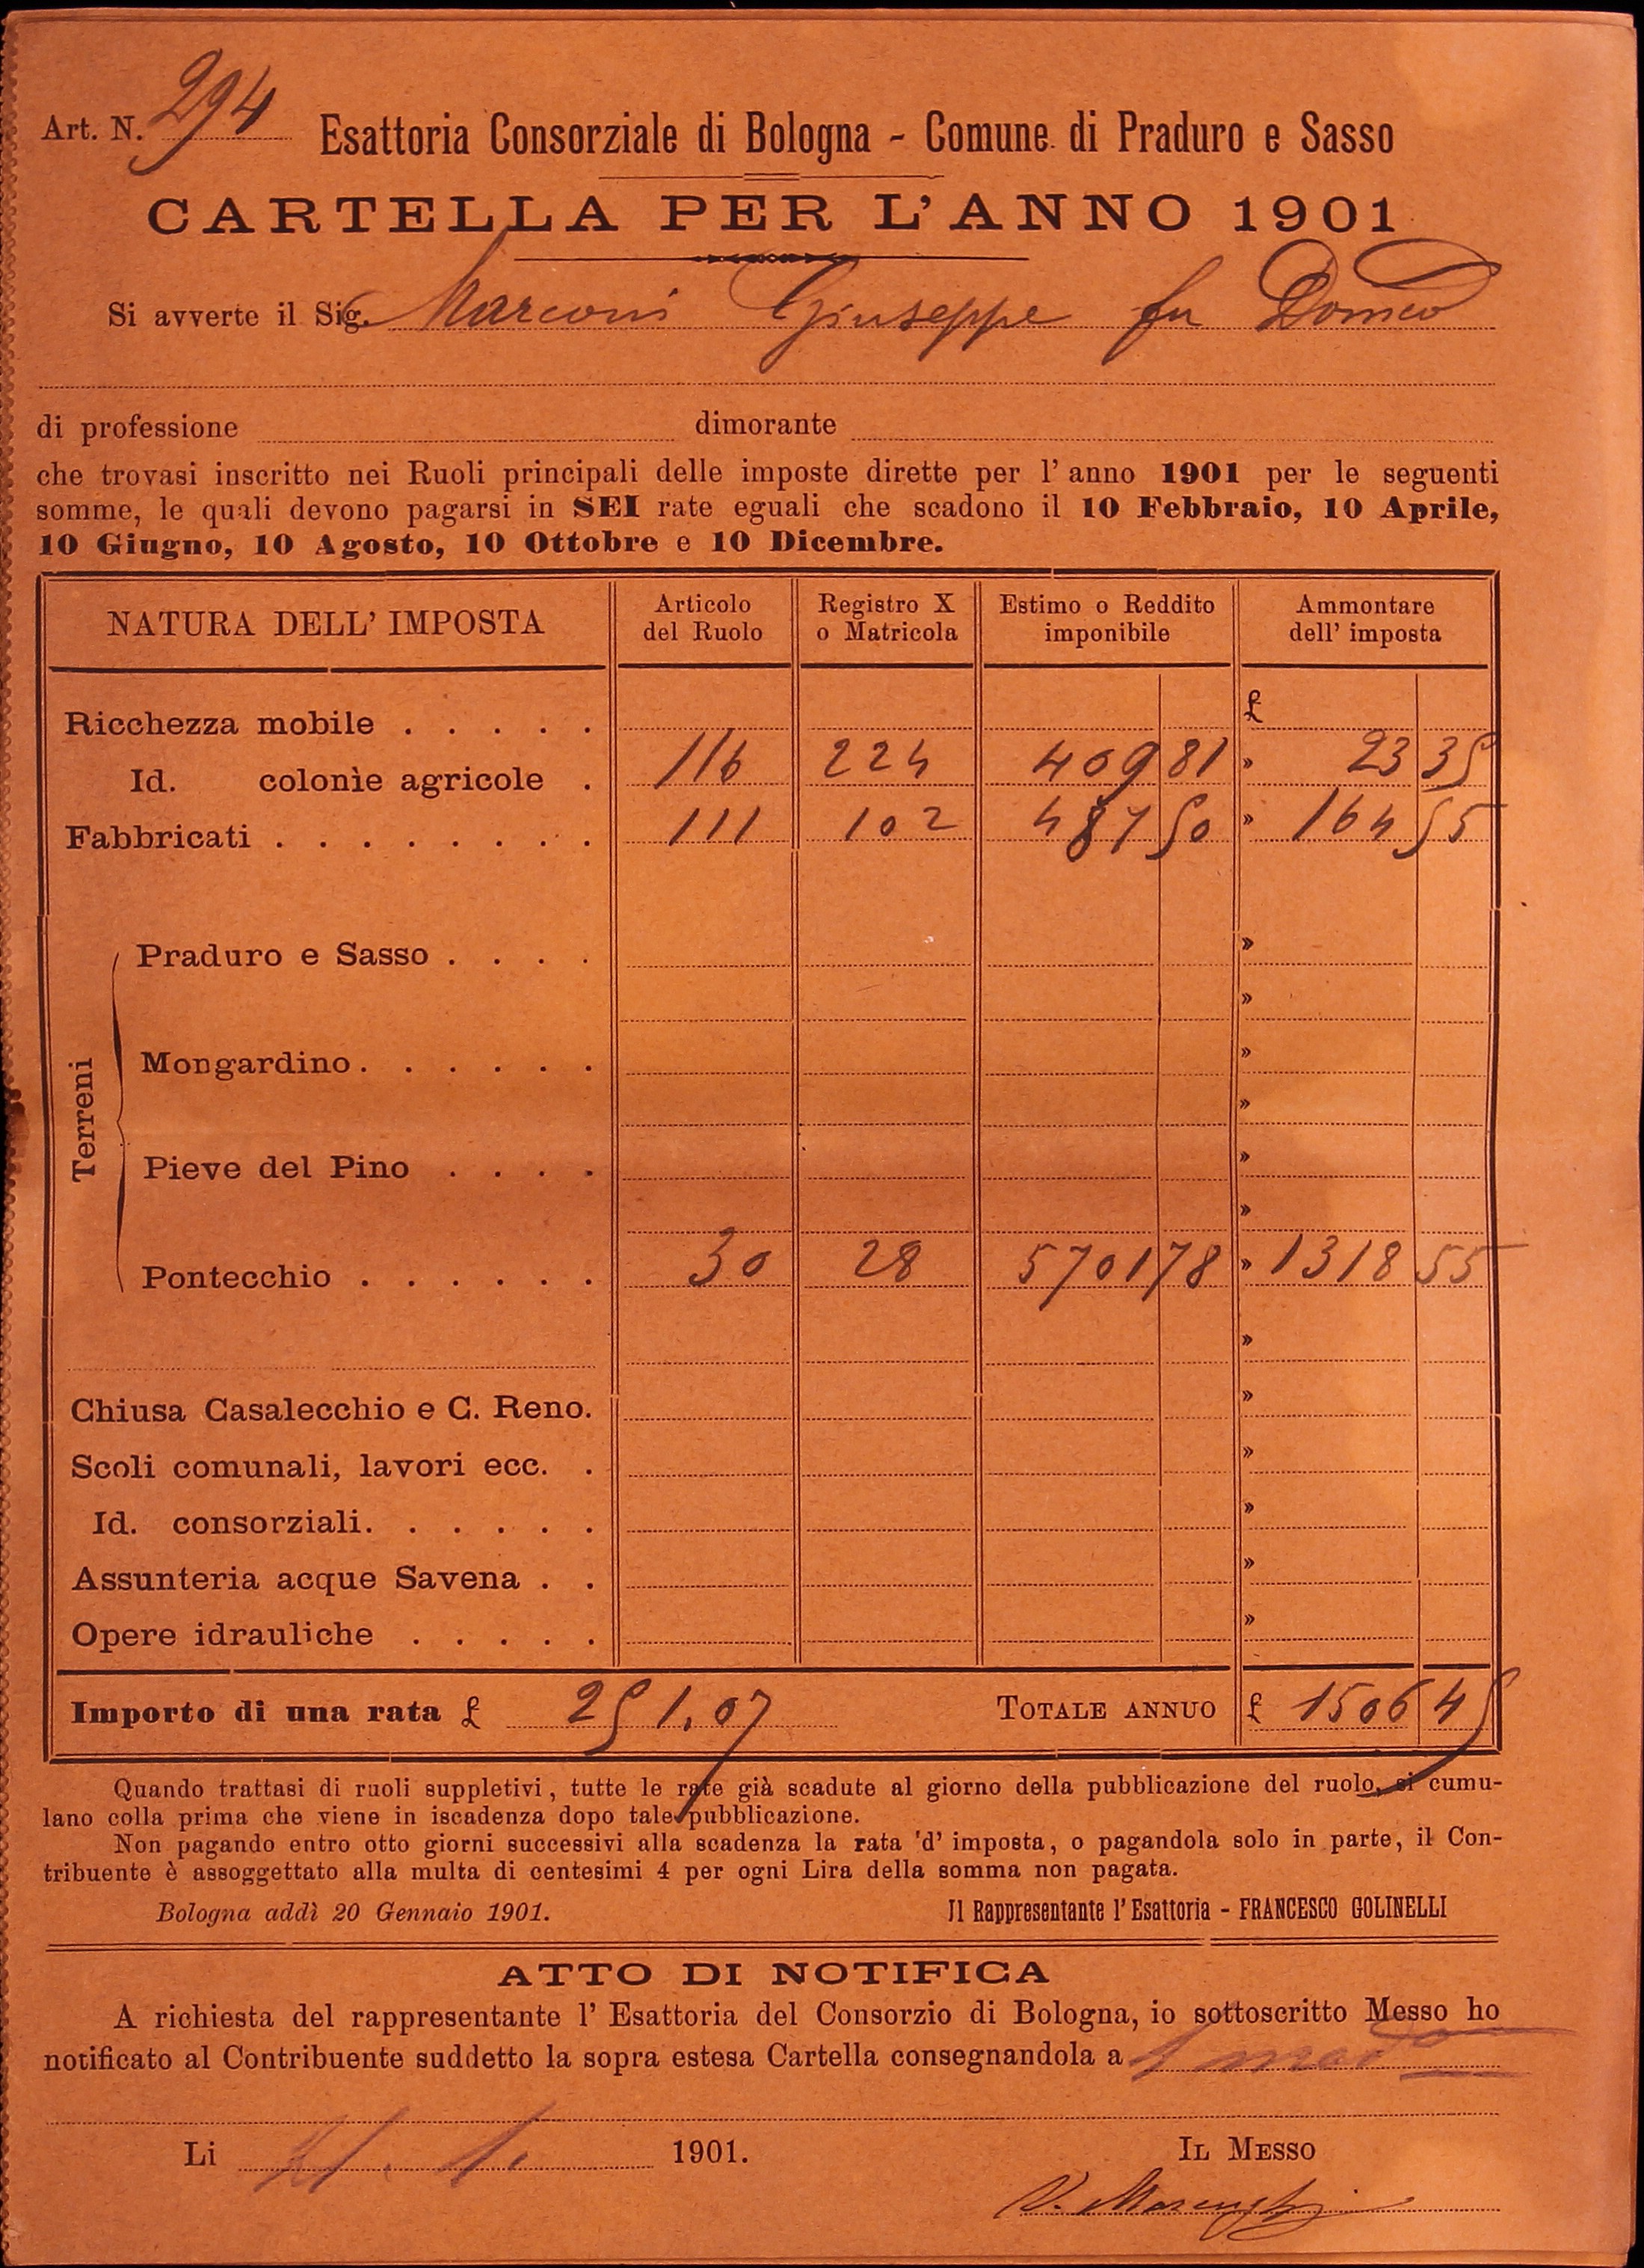 Art. N. 294 Esattoria Consorziale di Bologna - Comune di Praduro e Sasso
CARTELLA PER L'ANNO 1901
Si avverte il Sig. Marconi Giuseppe fu Domco
di professione dimorante
che trovasi inscritto nei Ruoli principali delle imposte dirette per l'anno 1901 per le seguenti
somme, le quali devono pagarsi in SEI rate eguali che scadono il 10 Febbraio, 10 Aprile,
10 Giugno, 10 Agosto, 10 Ottobre e 10 Dicembre.
NATURA DELL' IMPOSTA Articolo del Ruolo Registro X o Matricola Estimo o Reddito imponibile Ammontare dell' imposta
Ricchezza mobile . . . . . £
Id. colonìe agricole . 116 224 409 81 » 23 35
Fabbricati . . . . . . . . 111 102 487 50 » 164 55
Terreni
Praduro e Sasso . . . . »
»
Mongardino . . . . . . »
»
Pieve del Pino . . . . »
»
Pontecchio . . . . . . 30 28 5701 78 » 1318 55
»
Chiusa Casalecchio e C. Reno. »
Scoli comunali, lavori ecc. . »
Id. consorziali. . . . . . »
Assunteria acque Savena . . »
Opere idrauliche . . . . . »
Importo di una rata £ 251,07 TOTALE ANNUO £ 1506 45
Quando trattasi di ruoli suppletivi, tutte le rate già scadute al giorno della pubblicazione del ruolo, si cumu-
lano colla prima che viene in iscadenza dopo tale pubblicazione.
Non pagando entro otto giorni successivi alla scadenza la rata 'd' imposta, o pagandola solo in parte, il Con-
tribuente è assoggettato alla multa di centesimi 4 per ogni Lira della somma non pagata.
Bologna addì 20 Gennaio 1901. Il Rappresentante l' Esattoria - FRANCESCO GOLINELLI
ATTO DI NOTIFICA
A richiesta del rappresentante l' Esattoria del Consorzio di Bologna, io sottoscritto Messo ho
notificato al Contribuente suddetto la sopra estesa Cartella consegnandola a
Li 1901. IL MESSO